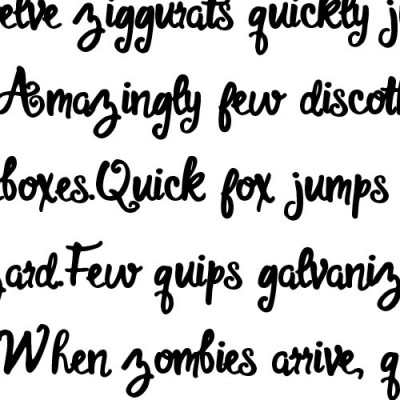 elve ziggurats quickly j
Amazingly few discot
boxes.Quick fox jumps
zard.Few quips galvaniz
When zombies arrive, q